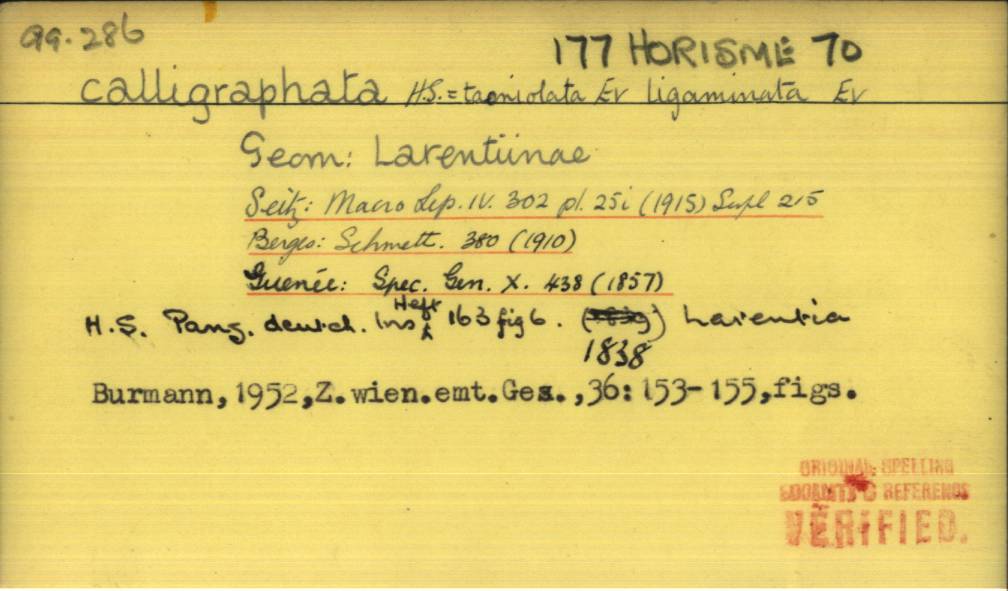 99.286
177 HORISME 70
calligraphata H.S. = taeniolata Ev ligaminata Ev
Geom: Larentiinae
Seitz: Macro Lep. IV. 302 pl. 25i (1915) Supl 215
Berges: Schmett. 380 (1910)
Guenée: Spec. Gen. X. 438 (1857)
H.S. Panz. deutch. Ins Heft 163 fig 6. Larentia
1838
Burmann, 1952, Z. wien. emt. Ges., 36: 153-155, figs.
ORIGINAL SPELLING
REFERENCE
VERIFIED.